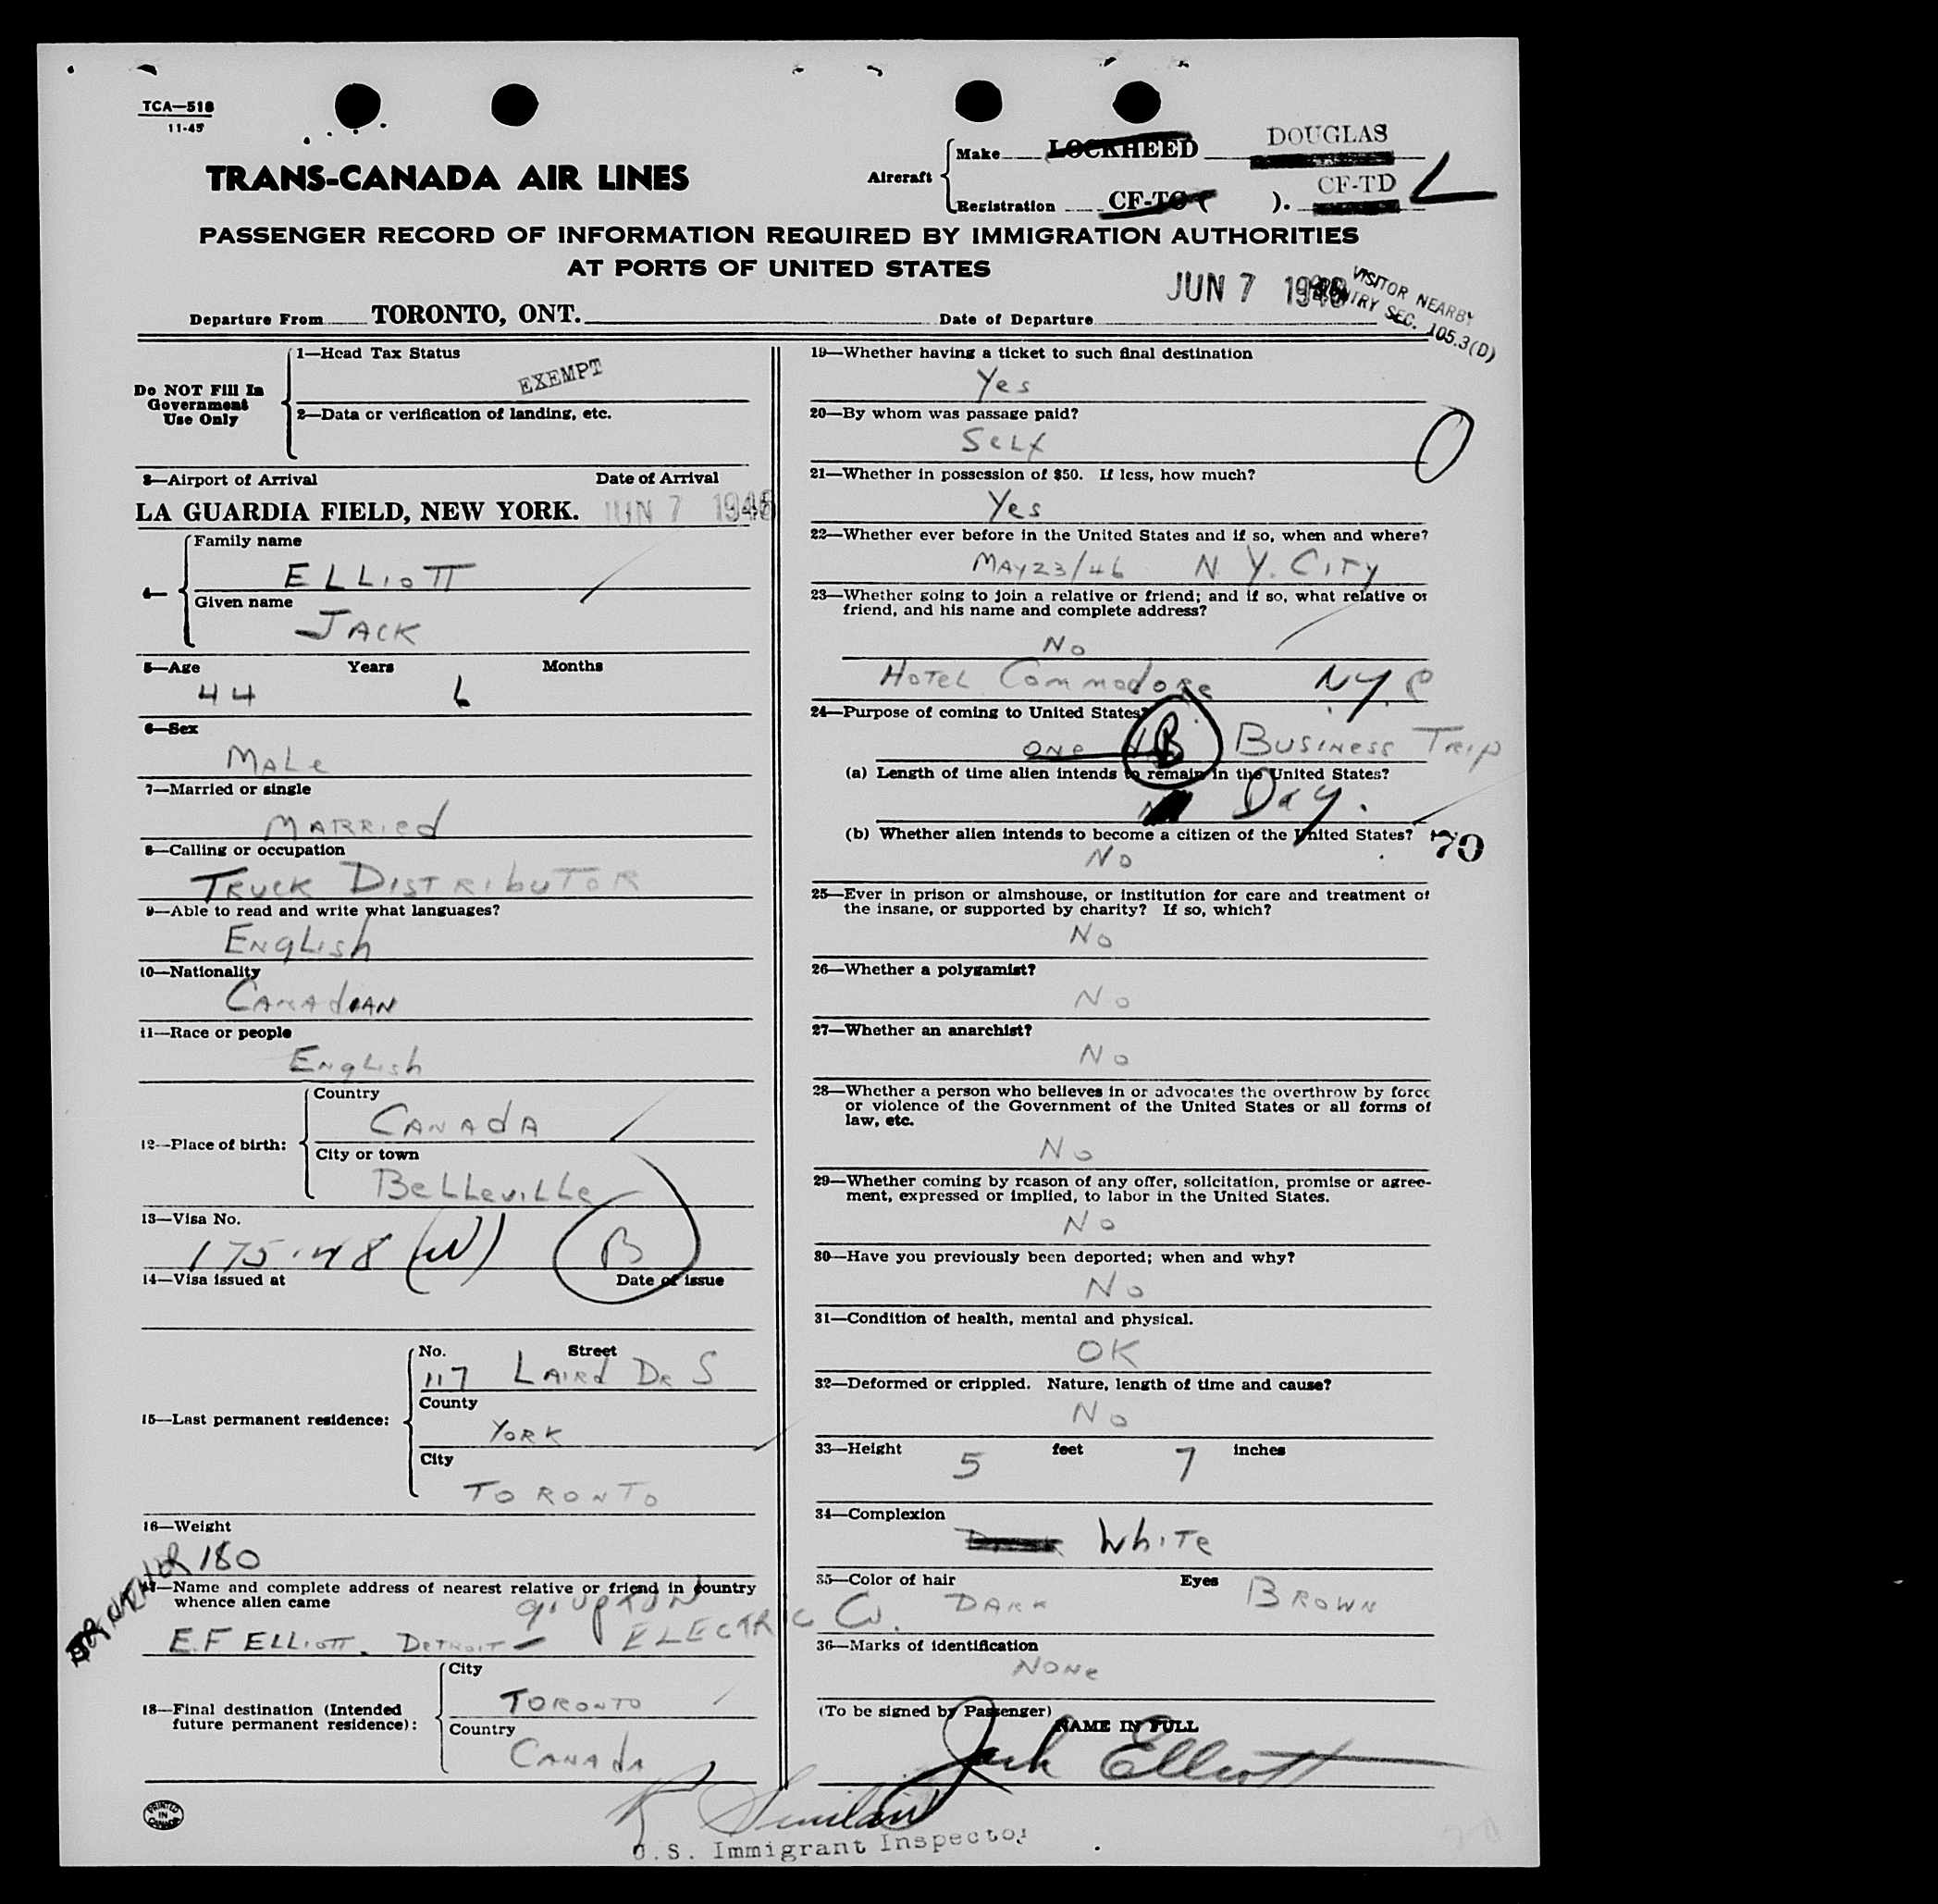 TCA—518
11-45
TRANS-CANADA AIR LINES
Aircraft
Make LOCKHEED DOUGLAS
Registration CF-TC ). CF-TD L
PASSENGER RECORD OF INFORMATION REQUIRED BY IMMIGRATION AUTHORITIES
AT PORTS OF UNITED STATES
Departure From TORONTO, ONT.
Date of Departure JUN 7 1946
VISITOR NEARBY
COUNTRY SEC. 105.3(D)
Do NOT Fill In
Government
Use Only
1—Head Tax Status
EXEMPT
2—Data or verification of landing, etc.
3—Airport of Arrival Date of Arrival
LA GUARDIA FIELD, NEW YORK. JUN 7 1946
4—
Family name
ELLIOTT
Given name
JACK
5—Age Years Months
44 6
6—Sex
MALe
7—Married or single
MARRied
8—Calling or occupation
TRUCK DISTRIbUTOR
9—Able to read and write what languages?
ENgLish
10—Nationality
CANAdIAN
11—Race or people
ENgLish
12—Place of birth:
Country
CANAdA
City or town
BeLLeviLLe
13—Visa No.
175.48 (W) B
14—Visa issued at Date of issue
15—Last permanent residence:
No. Street
117 LAIRd DR S
County
YORK
City
TORONTO
16—Weight
180
17—Name and complete address of nearest relative or friend in country
whence alien came
E.F ELLIOTT. DETROIT — ELECTRIC Co.
18—Final destination (Intended
future permanent residence):
City
TORONTO
Country
CANAdA
PRINTED
IN
CANADA
19—Whether having a ticket to such final destination
Yes
20—By whom was passage paid?
SeLf
0
21—Whether in possession of $50. If less, how much?
Yes
22—Whether ever before in the United States and if so, when and where?
MAY 23/46 N.Y. CITy
23—Whether going to join a relative or friend; and if so, what relative or
friend, and his name and complete address?
No
HOTEL Commodore NYC
24—Purpose of coming to United States?
one B BUSINess TRIp
(a) Length of time alien intends to remain in the United States?
Day.
(b) Whether alien intends to become a citizen of the United States?
No
70
25—Ever in prison or almshouse, or institution for care and treatment of
the insane, or supported by charity? If so, which?
No
26—Whether a polygamist?
No
27—Whether an anarchist?
No
28—Whether a person who believes in or advocates the overthrow by force
or violence of the Government of the United States or all forms of
law, etc.
No
29—Whether coming by reason of any offer, solicitation, promise or agree-
ment, expressed or implied, to labor in the United States.
No
30—Have you previously been deported; when and why?
No
31—Condition of health, mental and physical.
OK
32—Deformed or crippled. Nature, length of time and cause?
No
33—Height 5 feet 7 inches
34—Complexion
WhiTe
35—Color of hair DARK Eyes BROWN
36—Marks of identification
NONe
(To be signed by Passenger)
NAME IN FULL
Jack Elliott
U.S. Immigrant Inspector